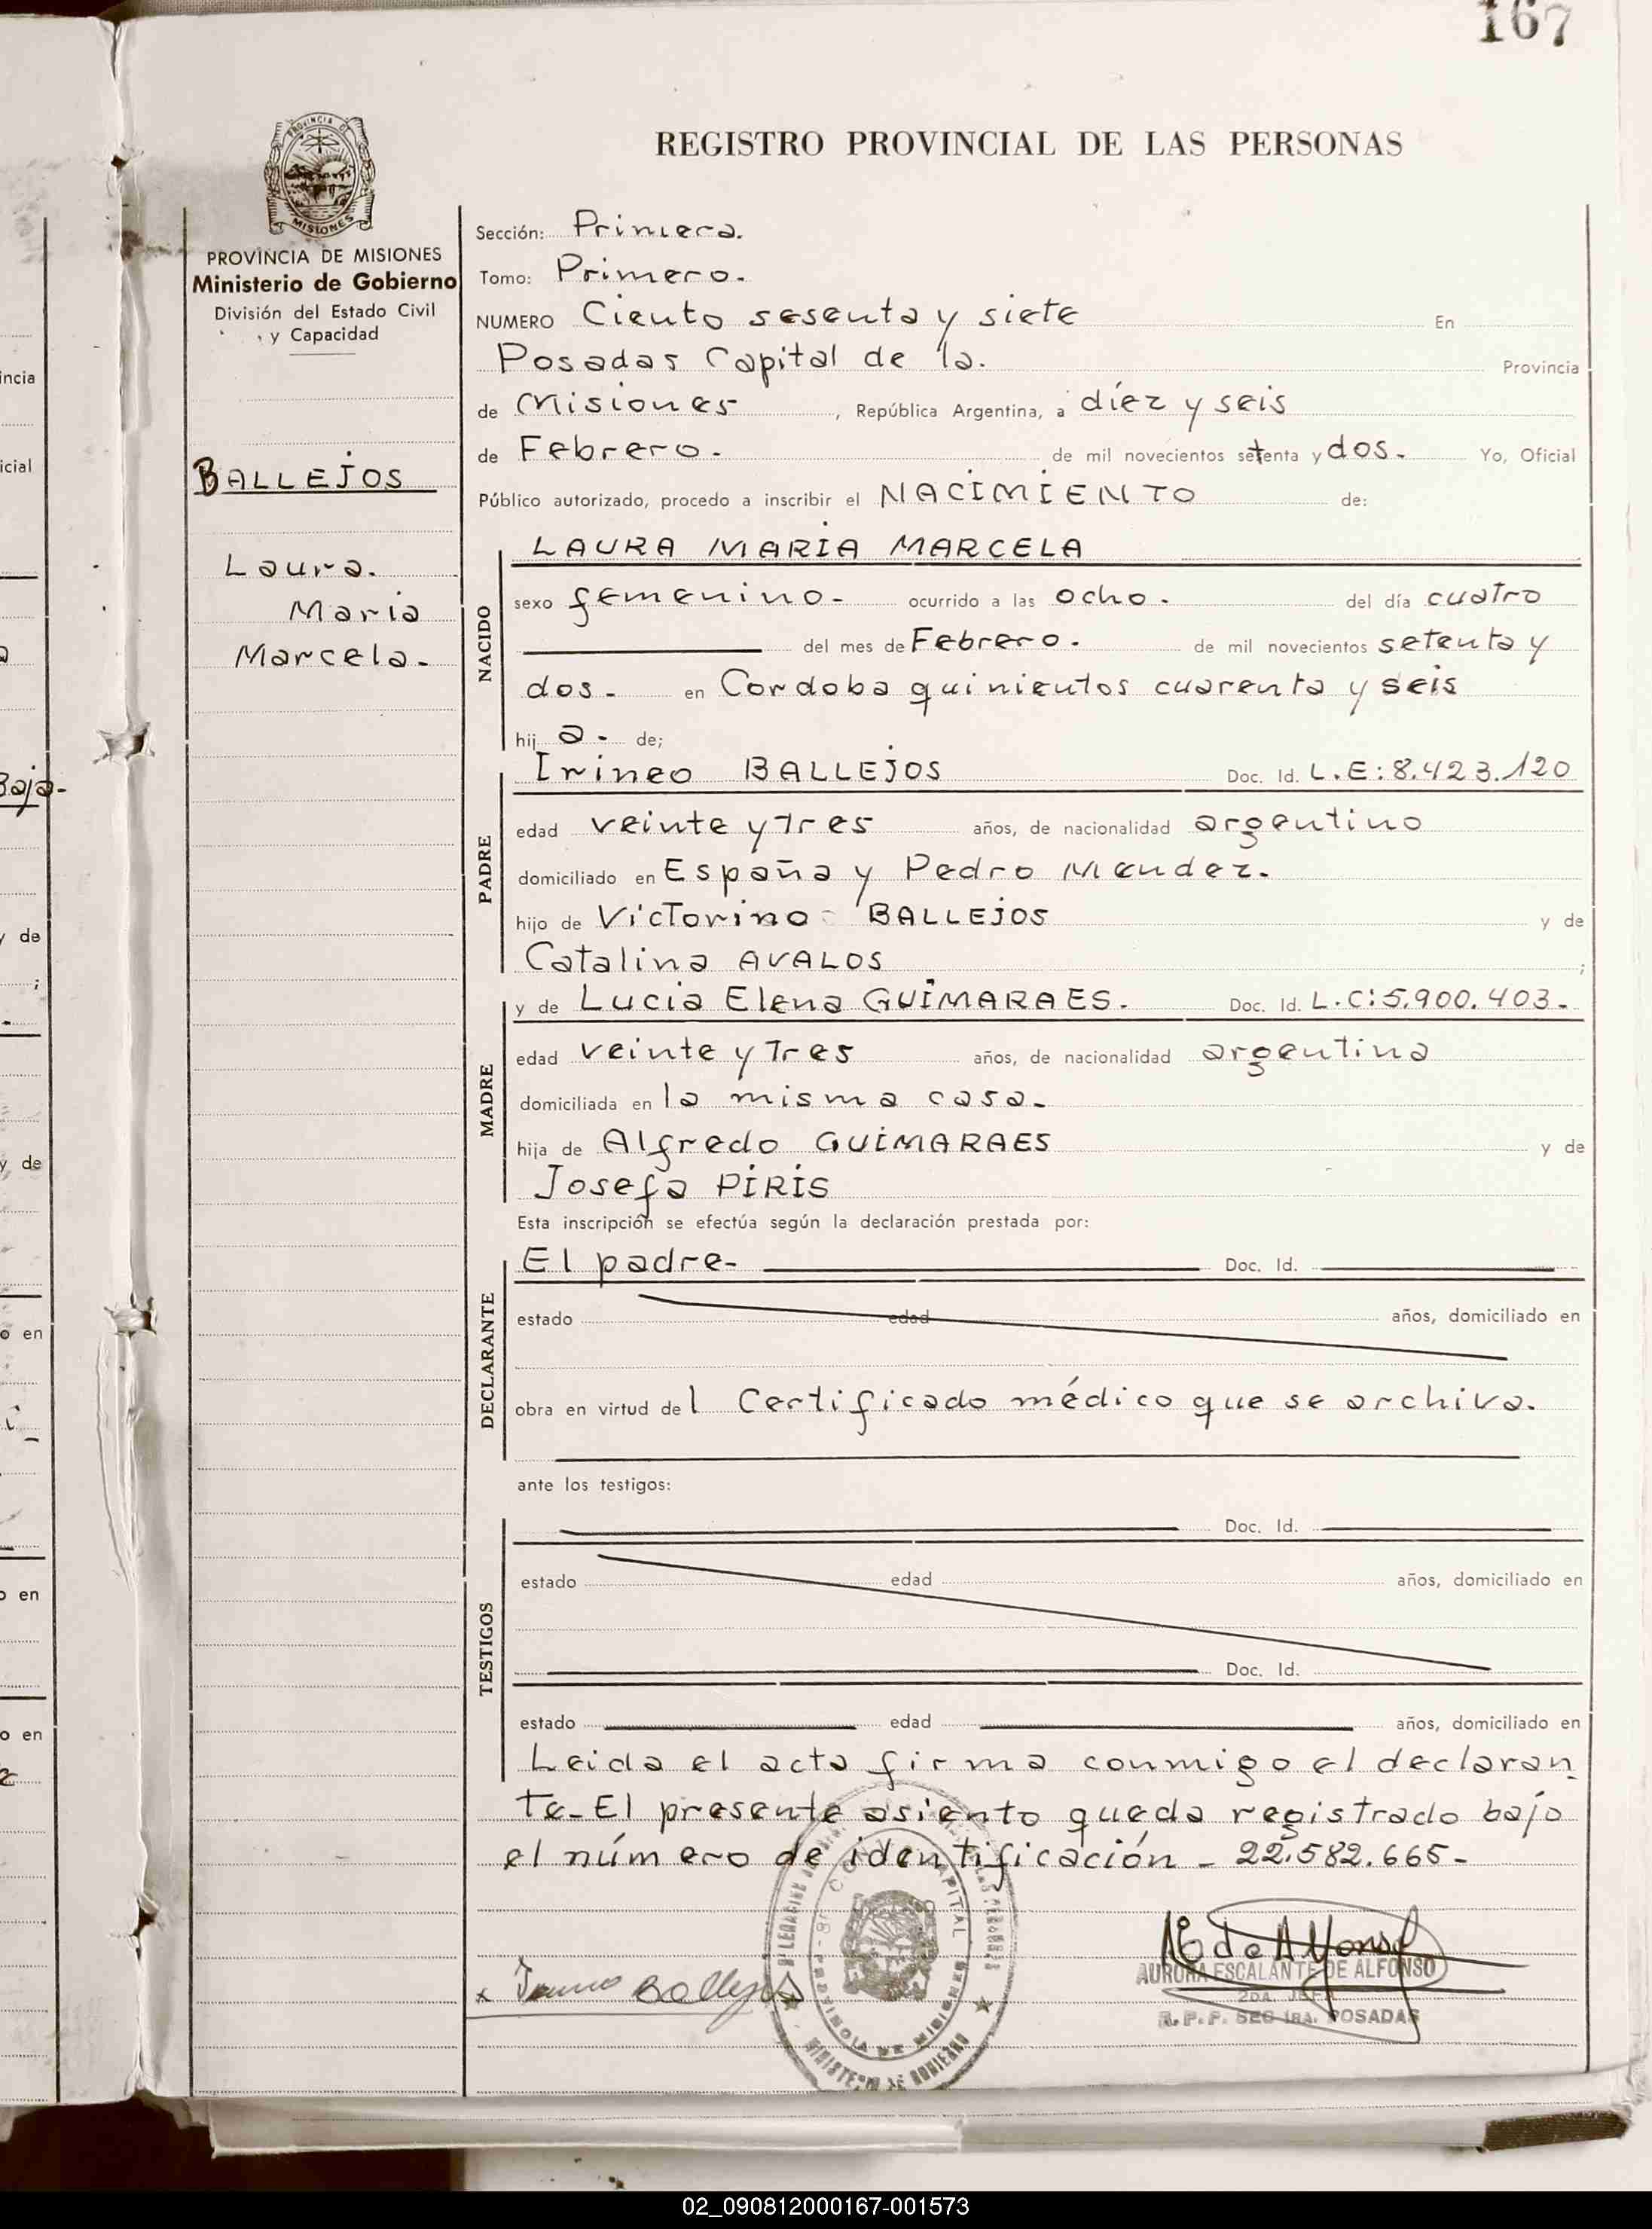 167
PROVINCIA DE
MISIONES
PROVINCIA DE MISIONES
Ministerio de Gobierno
División del Estado Civil
y Capacidad
BALLEJOS
Laura.
Maria
Marcela.
REGISTRO PROVINCIAL DE LAS PERSONAS
Sección: Primera.
Tomo: Primero.
NUMERO Ciento sesenta y siete En
Posadas Capital de la. Provincia
de Misiones , República Argentina, a diez y seis
de Febrero. de mil novecientos setenta y dos. Yo, Oficial
Público autorizado, procedo a inscribir el NACIMIENTO de:
NACIDO
LAURA MARIA MARCELA
sexo femenino- ocurrido a las ocho. del día cuatro
del mes de Febrero. de mil novecientos setenta y
dos- en Cordoba quinientos cuarenta y seis
hij a. de;
PADRE
Irineo BALLEJOS Doc. Id. L.E:8.423.120
edad veinte y Tres años, de nacionalidad argentino
domiciliado en España y Pedro Mendez.
hijo de Victorino BALLEJOS y de
Catalina AVALOS ;
MADRE
y de Lucia Elena GUIMARAES. Doc. Id. L.C:5.900.403-
edad veinte y Tres años, de nacionalidad argentina
domiciliada en la misma casa.
hija de Alfredo GUIMARAES y de
Josefa PIRIS
Esta inscripción se efectúa según la declaración prestada por:
DECLARANTE
El padre- Doc. Id.
estado edad años, domiciliado en
obra en virtud del Certificado médico que se archiva.
ante los testigos:
TESTIGOS
Doc. Id.
estado edad años, domiciliado en
Doc. Id.
estado edad años, domiciliado en
Leida el acta firma conmigo el declaran
te-El presente asiento queda registrado bajo
el número de identificación - 22.582.665-
Ballejos
AE de Alfonso
AURORA ESCALANTE DE ALFONSO
2DA. JEFA
R.P.P. SEC 1RA. POSADAS
CAPITAL
PROVINCIA DE MISIONES
MINISTERIO DE GOBIERNO
incia
icial
Baja-
y de
;
y de
o en
o en
o en
02_090812000167-001573